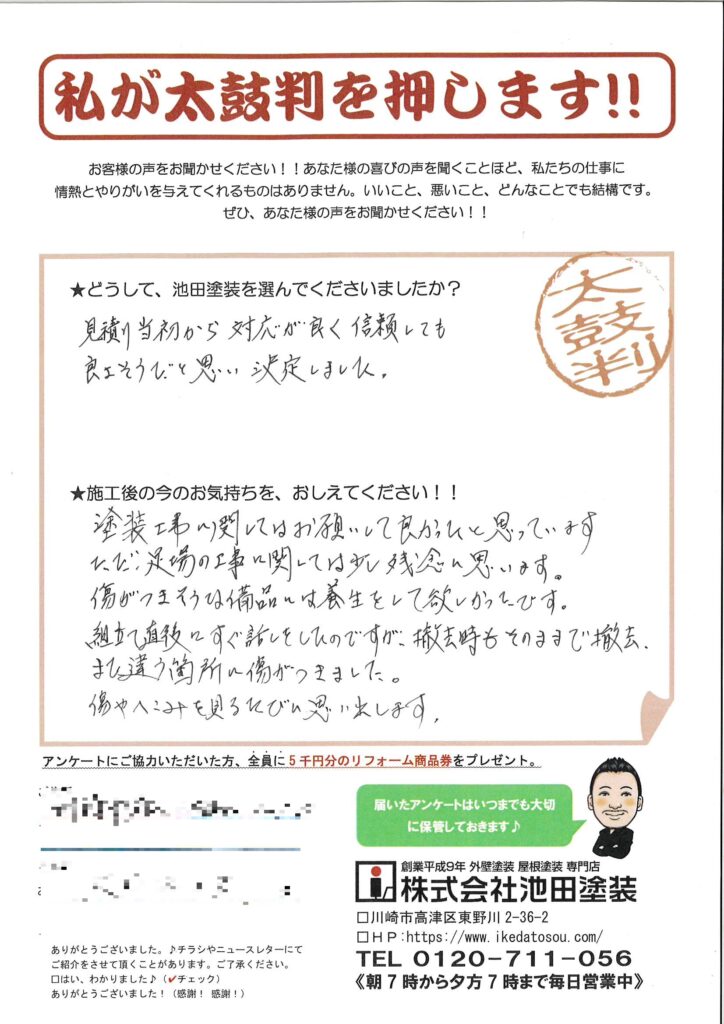 私が太鼓判を押します!!
お客様の声をお聞かせください！！あなた様の喜びの声を聞くことほど、私たちの仕事に
情熱とやりがいを与えてくれるものはありません。いいこと、悪いこと、どんなことでも結構です。
ぜひ、あなた様の声をお聞かせください！！
太鼓判
★どうして、池田塗装を選んでくださいましたか？
見積り当初から対応が良く信頼しても
良さそうだと思い決定しました。
★施工後の今のお気持ちを、おしえてください！！
塗装工事に関してはお願いして良かったと思っています
ただ、足場の工事に関しては少し残念に思います。
傷がつきそうな備品には養生をして欲しかったです。
組立て直後にすぐ話しをしたのですが、撤去時もそのままで撤去、
また違う箇所に傷がつきました。
傷やへこみを見るたびに思い出します。
アンケートにご協力いただいた方、全員に5千円分のリフォーム商品券をプレゼント。
届いたアンケートはいつまでも大切
に保管しておきます♪
創業平成9年 外壁塗装 屋根塗装 専門店
株式会社池田塗装
□川崎市高津区東野川 2-36-2
□ＨＰ:https://www.ikedatosou.com/
TEL 0120-711-056
《朝7時から夕方7時まで毎日営業中》
ありがとうございました。♪チラシやニュースレターにて
ご紹介をさせて頂くことがあります。ご了承ください。
□はい、わかりました♪（✓チェック）
ありがとうございました！（感謝！ 感謝！）